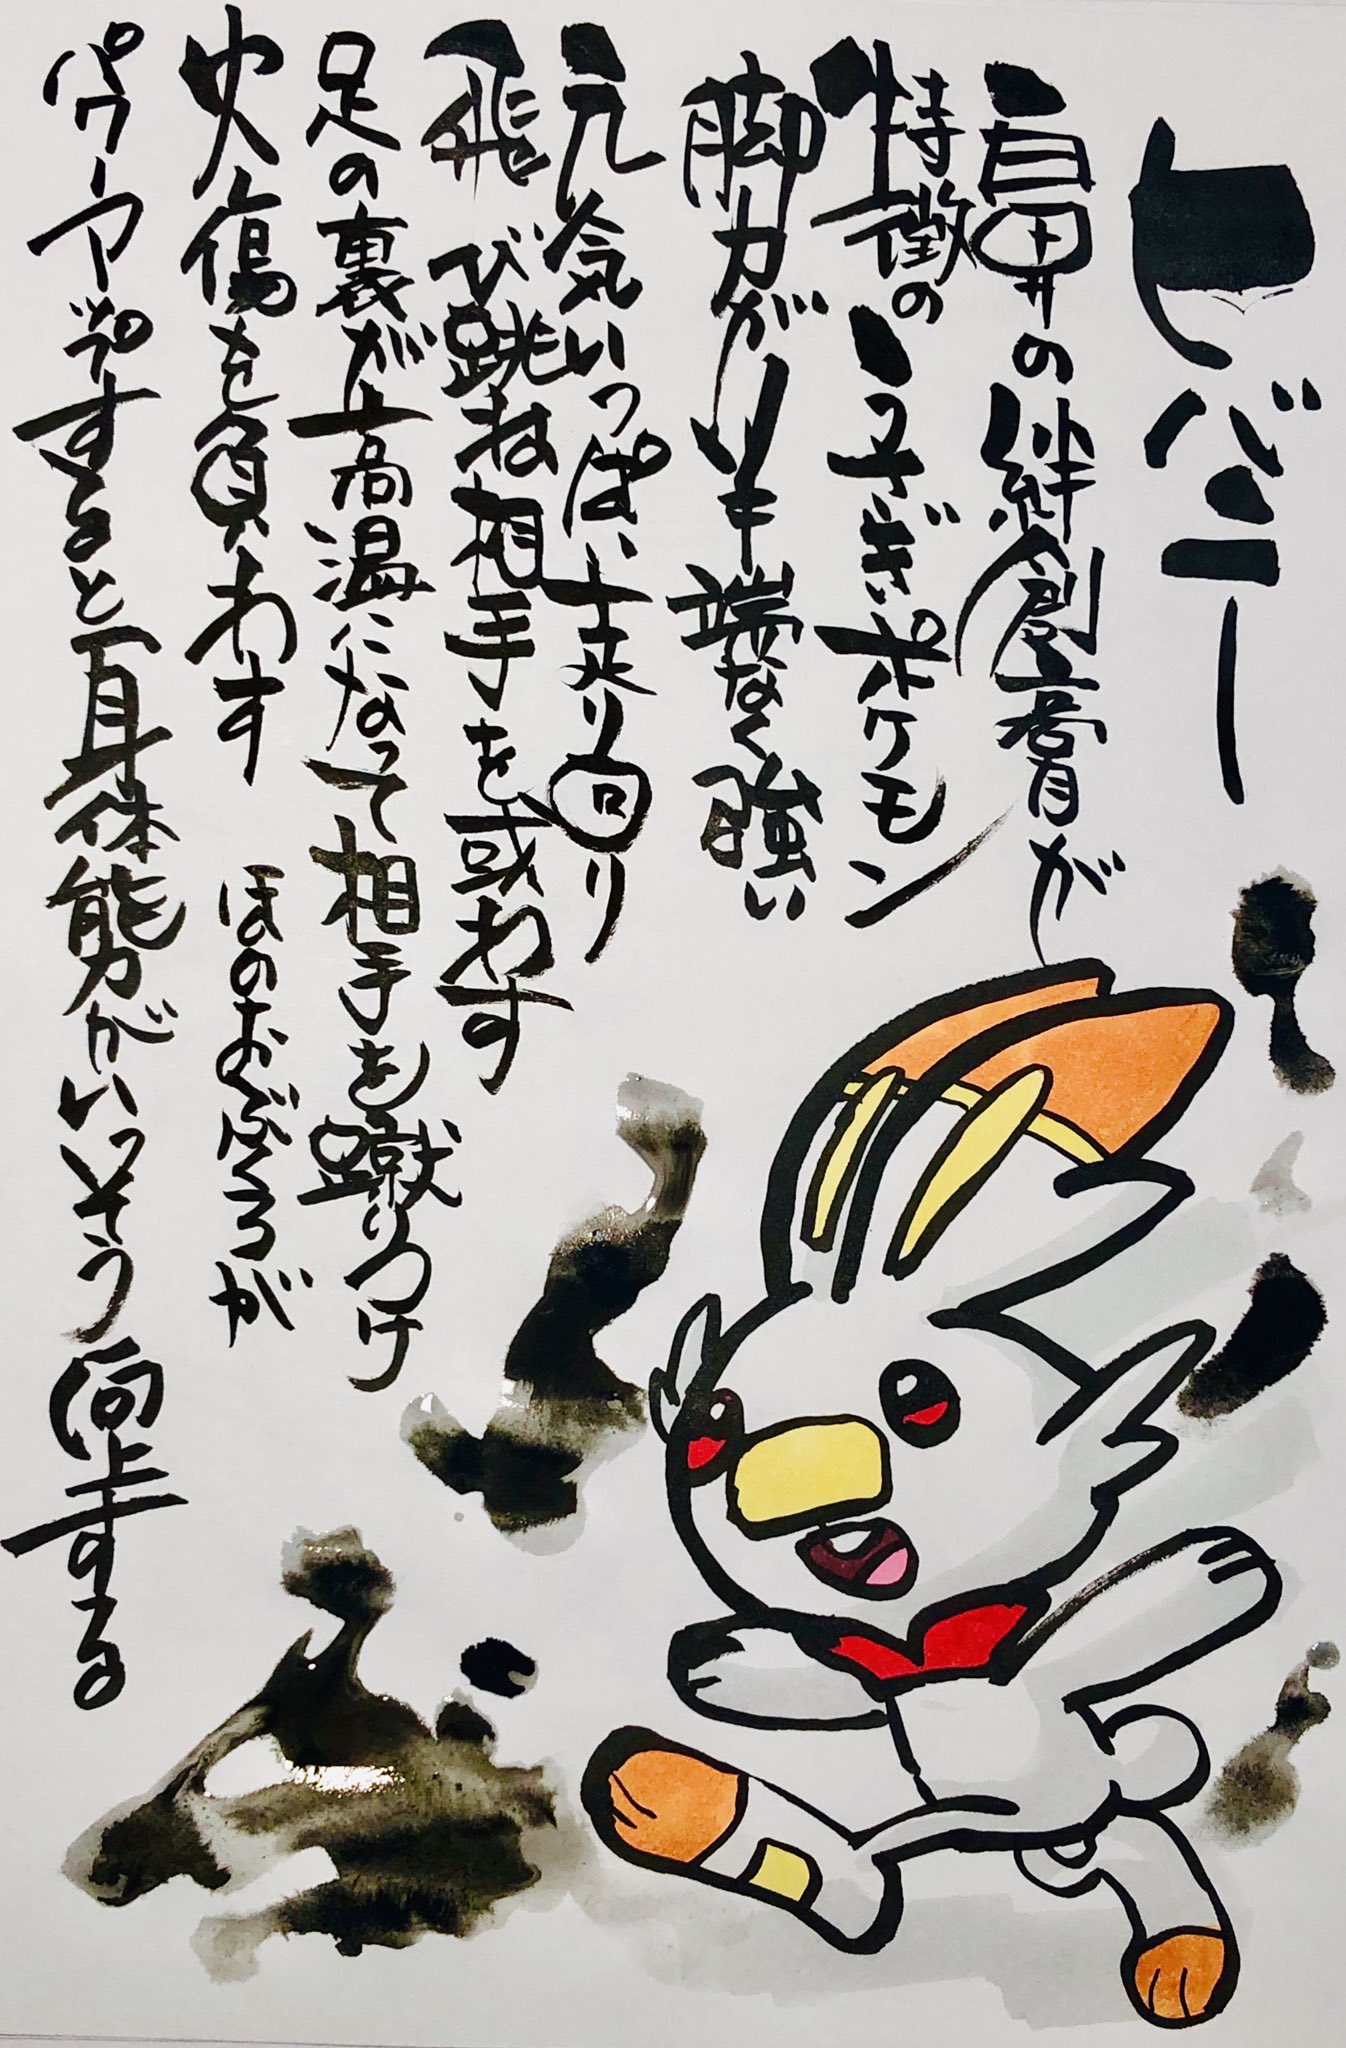 ヒバニー
鼻の絆創膏が
特徴のうさぎポケモン
脚力がソ半端なく強い
元気いっぱい走り回り
飛び跳ね相手を惑わす
足の裏が高温になって相手を蹴りつけ
火傷を負わす ほのおぶくろが
パワーアップすると身体能力がいっそう向上する